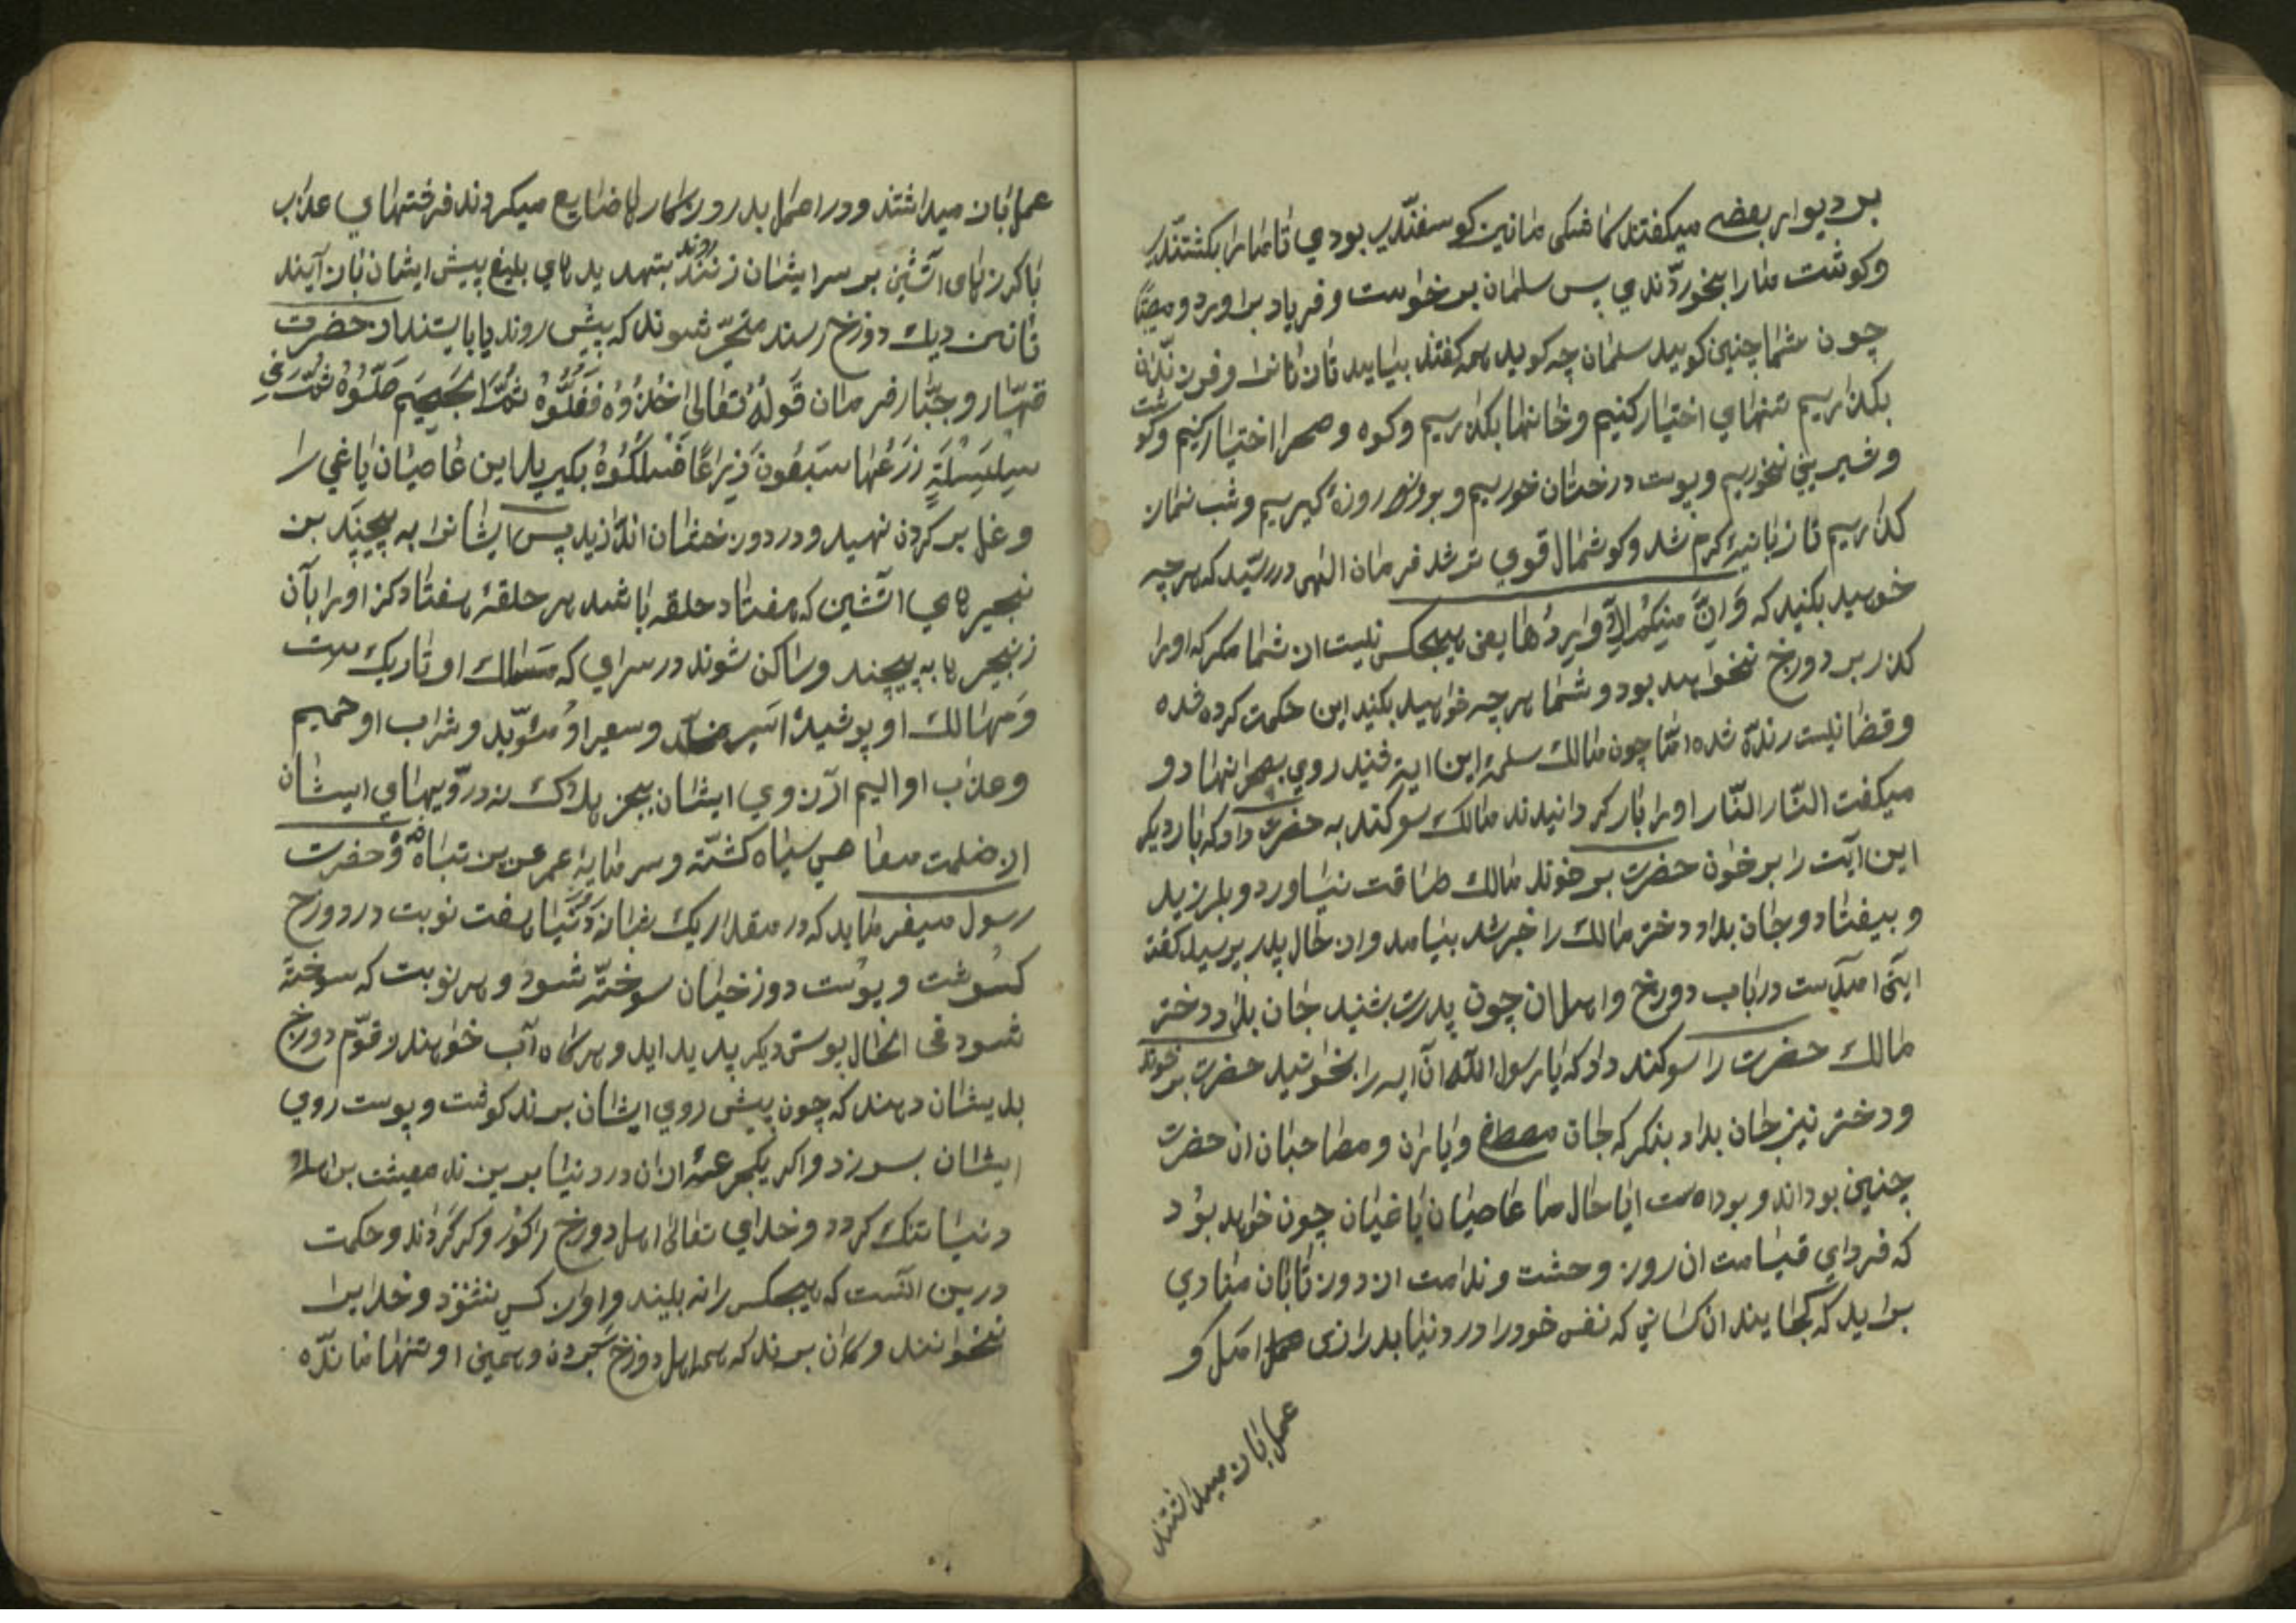 بر دیوار بعضی میکفتند کاشکی مانین کوسفندیب بودی تا مارا بکشتندی
وکوشت مارا بخوردندی پس سلمان بر خواست و فریاد براورد و
چون شما چنین کویید سلمان چه کوید همه کفتند بیایید تا زنانرا و فرزندان
بکذاریم تنهایی اختیار کنیم و خانها بکذاریم و کوه و صحرا اختیار کنیم و کوشت
و شیرینی نخوریم و پوست درختان خوریم و بروز روزه کیریم و شب نماز
کذاریم تا زبانیه کرم شد و کوشمال قوی تر شد فرمان الهی در رسید که هرچه
خوهید بکنید که وَاِنَّ مِنکُم اِلّا وارِدُها یعنی هیچکس نیست از شما مکر که اورا
کذر بر دوزخ نخواهد بود و شما هرچه خواهید بکنید این حکمت کرده شده
و قضا نیست رنده شده امّا چون مالك سلمه این ایه شنید روی بصحرا نهاد و
میکفت النّار النّار اورا باز کردانیدند مالك سوکند به حضرت داد که بار دیکر
این آیت را بر خوان حضرت بر خوند مالك طاقت نیاورد و بلرزید
و بیفتاد و جان بداد دختر مالك را خبر شد بیامد و از حال پدر پرسید کفت
ایتی امدست در باب دوزخ و اهل ان چون پدرت بشنید جان بداد دختر
مالك حضرت را سوکند داد که یا رسول الله آن ایه را بخوانید حضرت بر خوند
و دختر نیز جان بداد بنکر که جان مصطفی و یاران و مصاحبان ان حضرت
چنین بوداند و بوداست ایا حال ما عاصیان یاغیان چون خواهد بود
که فردای قیامت ان روز وحشت و ندامت از دوزتابان منادی
براید که کجایند ان کسانی که نفس خودرا در دنیا بدرازی امل و
عمل بان میداشتند
عمل بان میداشتند ودر اعمل بد روزکار را ضایع میکردند فرشتهای عذاب
با کرزهای اتشین بر سر ایشان زنند روند بتهدیدهای بلیغ پیش ایشان بان آیند
تا نزدیك دوزخ رسند متحیّر شوند که پیش روند یا بایستند از حضرت
قهّار و جبّار فرمان قَولُهُ تَعالی خُذُوهُ فَغُلُّوهُ ثُمَّ الجَحیمَ صَلُّوهُ ثُمَّ فی
سِلسِلَةٍ ذَرعُها سَبعُونَ ذِراعًا فَاسلُکُوهُ بکیرید این عاصیان یاغی را
و غل بر کردن نهید و در دوزخشان اندازید پس ایشانرا به پیچند بز
نجیرهای اتشین که هفتاد حلقه باشد هر حلقهٔ هفتاد کز اورا بآن
زنجیرها به پیچند و ساکن شوند در سرای که مسالك او تاریك است
وَمهالك او پوشیده اسیر و سعیر او مئوّبد و شراب او حمیم
و عذاب او الیم ارزوی ایشان بجز هلاك نه در رویهای ایشان
از ظلمت معاصی سیاه کشته و سرمایه عمر عزیز تباه و حضرت
رسول میفرماید که در مقدار یك شبانه دُنیا هفت نوبت در دوزخ
کوشت و پوست دوزخیان سوخته شود و هر نوبت که سوخته
شود فی الحال پوستی دیکر پدید اید و هرکاه آب خواهند زقوّم دوزخ
بدیشان دهند که چون پیش روی ایشان برند کوشت و پوست روی
ایشان بسوزد و اکر یکجرعه ازان در دنیا بریزند معیشت بر اهل
دنیا تنك کردد و خدای تعالی اهل دوزخ را کور و کر کرداند و حکمت
درین انست که هیچکس را نه بیند و اواز کس نشنود و خدایرا
نخوانند و کمان برند که همه اهل دوزخ بیرون و همین او تنها مانده